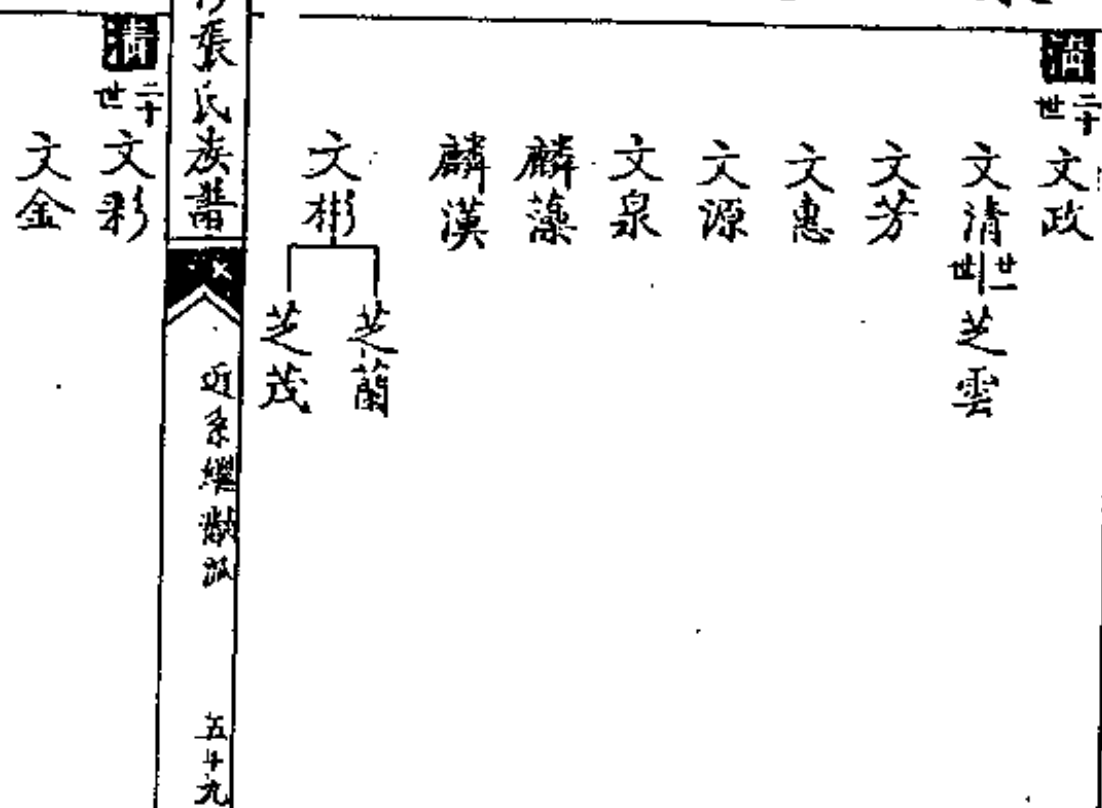 二十世
文政
文清
廿一世
芝雲
文芳
文惠
文源
文泉
麟藻
麟漢
文彬
芝蘭
芝茂
張氏族譜
近系繼猷派
五十九
二十世
文彩
文金